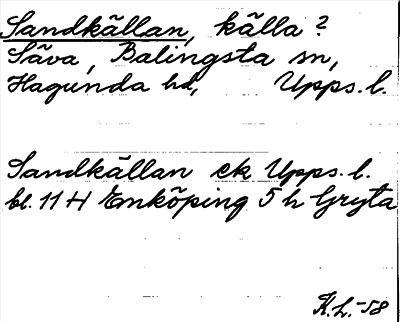 Sandkällan, källa?
Säva, Balingsta sn,
Hagunda hd, Upps. l.
Sandkällan ek Upps. l.
bl. 11 H Enköping 5 h Gryta
K.L.-58